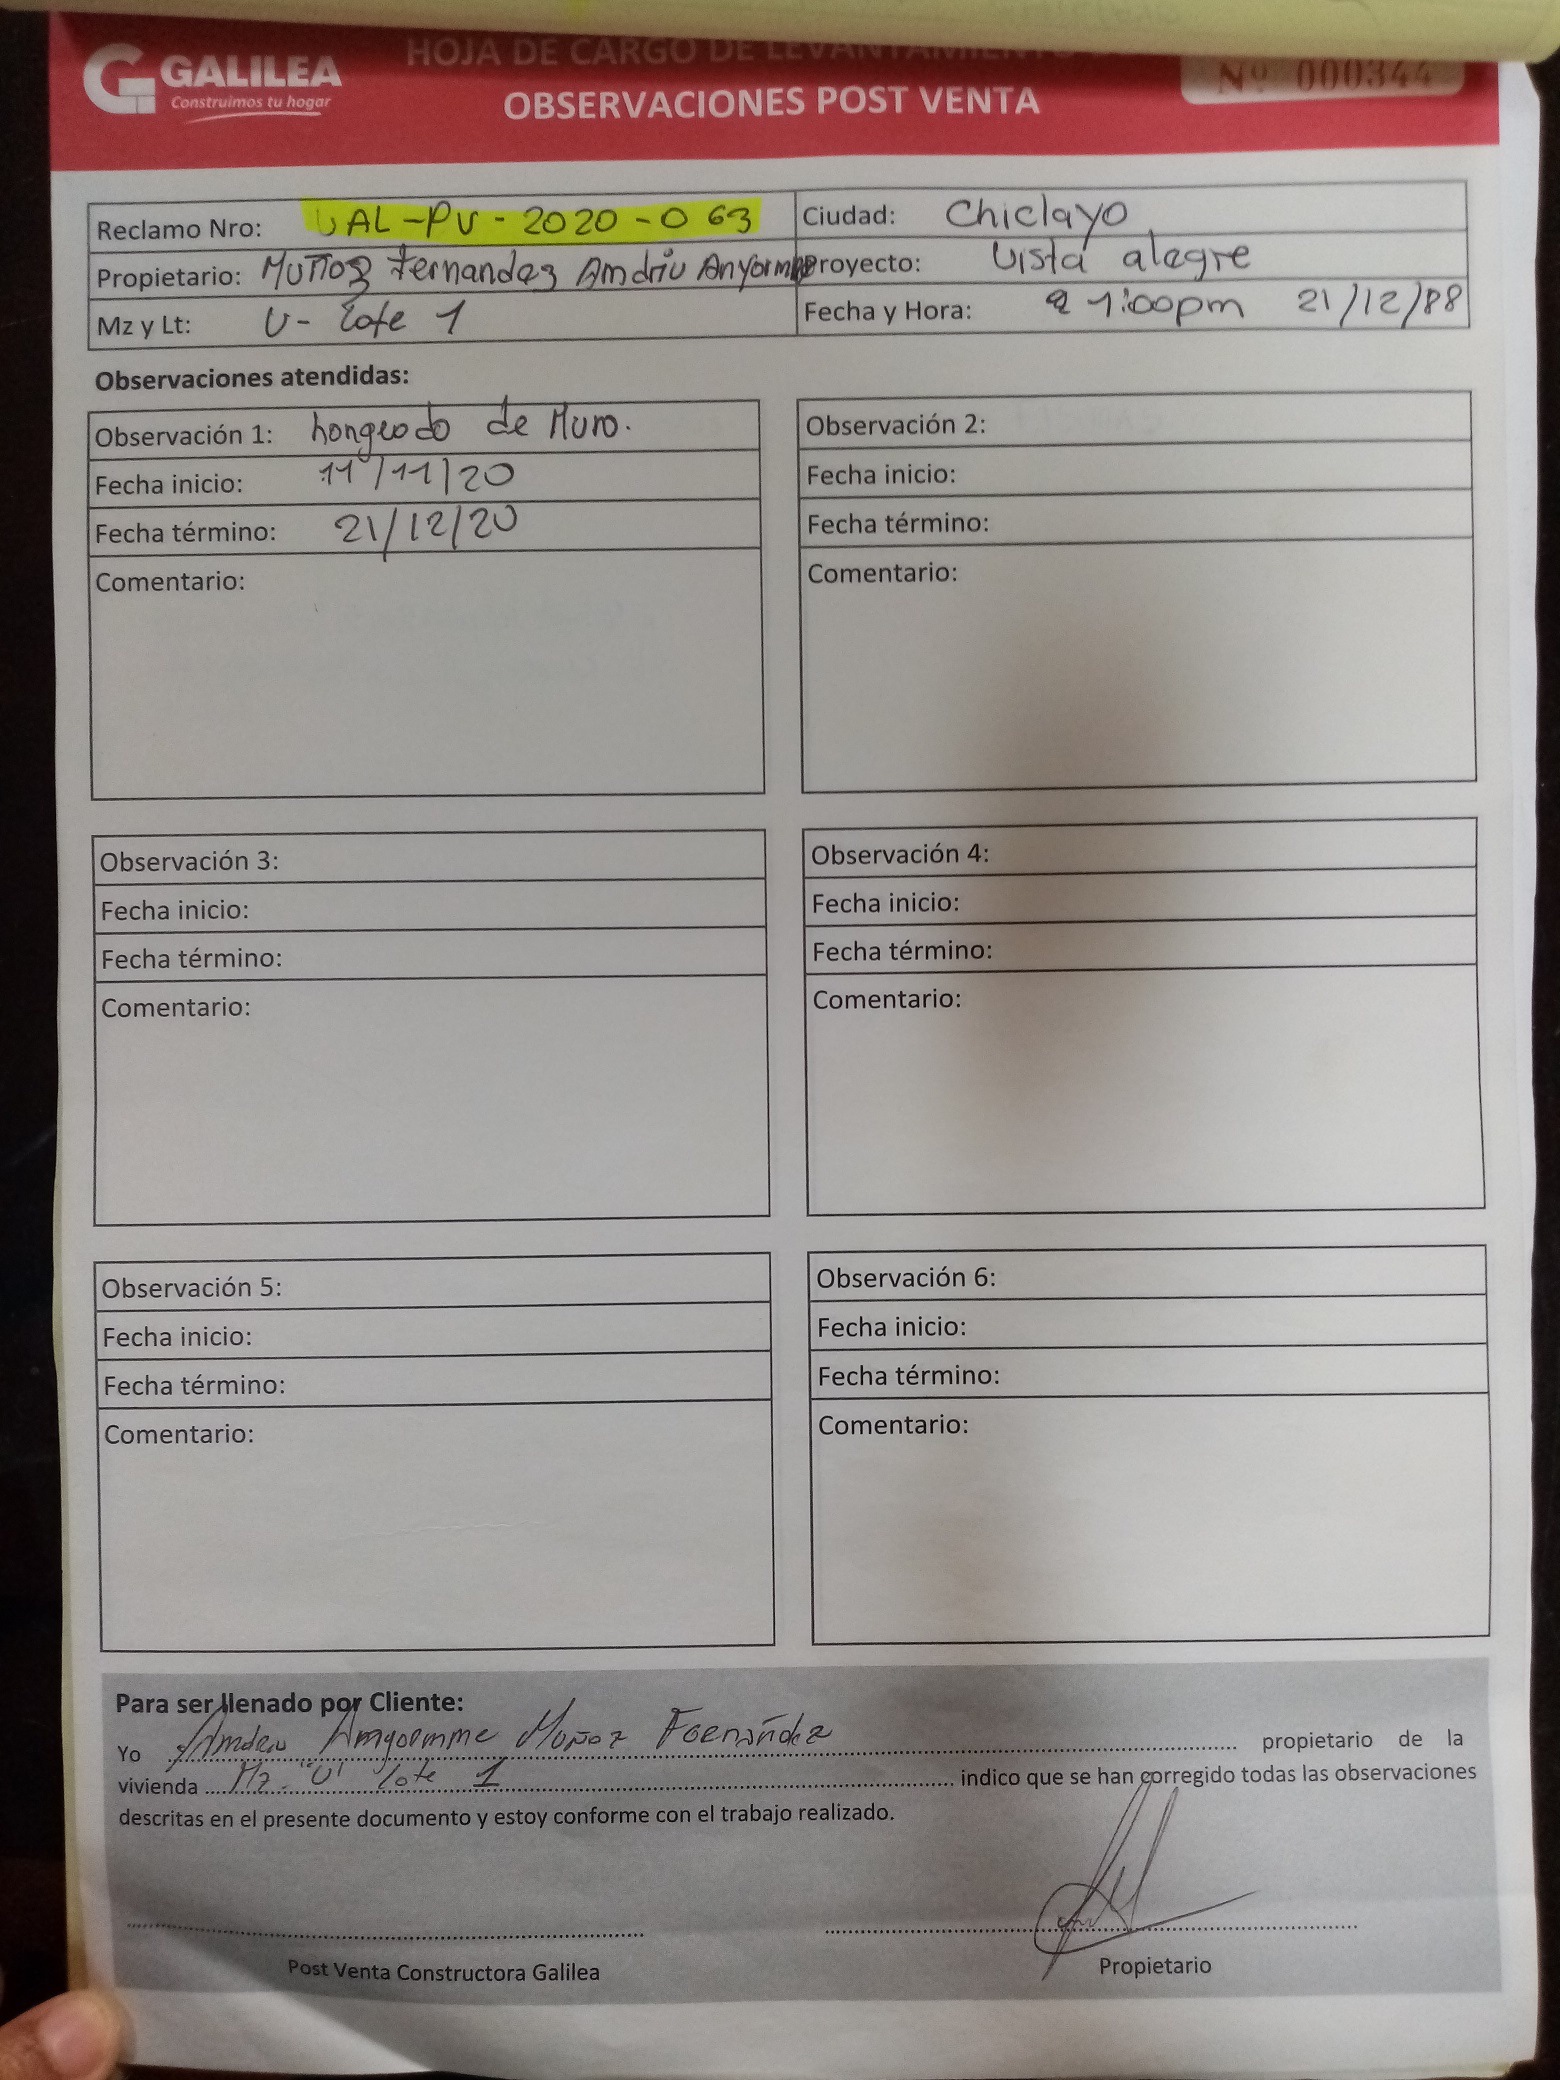 GALILEA
Construimos tu hogar
HOJA DE CARGO DE LEVANTAMIENTO
OBSERVACIONES POST VENTA
Nº 000344
Reclamo Nro: UAL-PV-2020-063
Ciudad: Chiclayo
Propietario: Muñoz Fernandez Amdriu
Proyecto: Vista alegre
Mz y Lt: U- Lote 1
Fecha y Hora: 1:00pm 21/12/
Observaciones atendidas:
Observación 1: hongeado de Muro.
Fecha inicio: 11/11/20
Fecha término: 21/12/20
Comentario:
Observación 2:
Fecha inicio:
Fecha término:
Comentario:
Observación 3:
Fecha inicio:
Fecha término:
Comentario:
Observación 4:
Fecha inicio:
Fecha término:
Comentario:
Observación 5:
Fecha inicio:
Fecha término:
Comentario:
Observación 6:
Fecha inicio:
Fecha término:
Comentario:
Para ser llenado por Cliente:
Yo Muñoz Fernández propietario de la
vivienda Mz "U" Lote 1 indico que se han corregido todas las observaciones
descritas en el presente documento y estoy conforme con el trabajo realizado.
Post Venta Constructora Galilea
Propietario